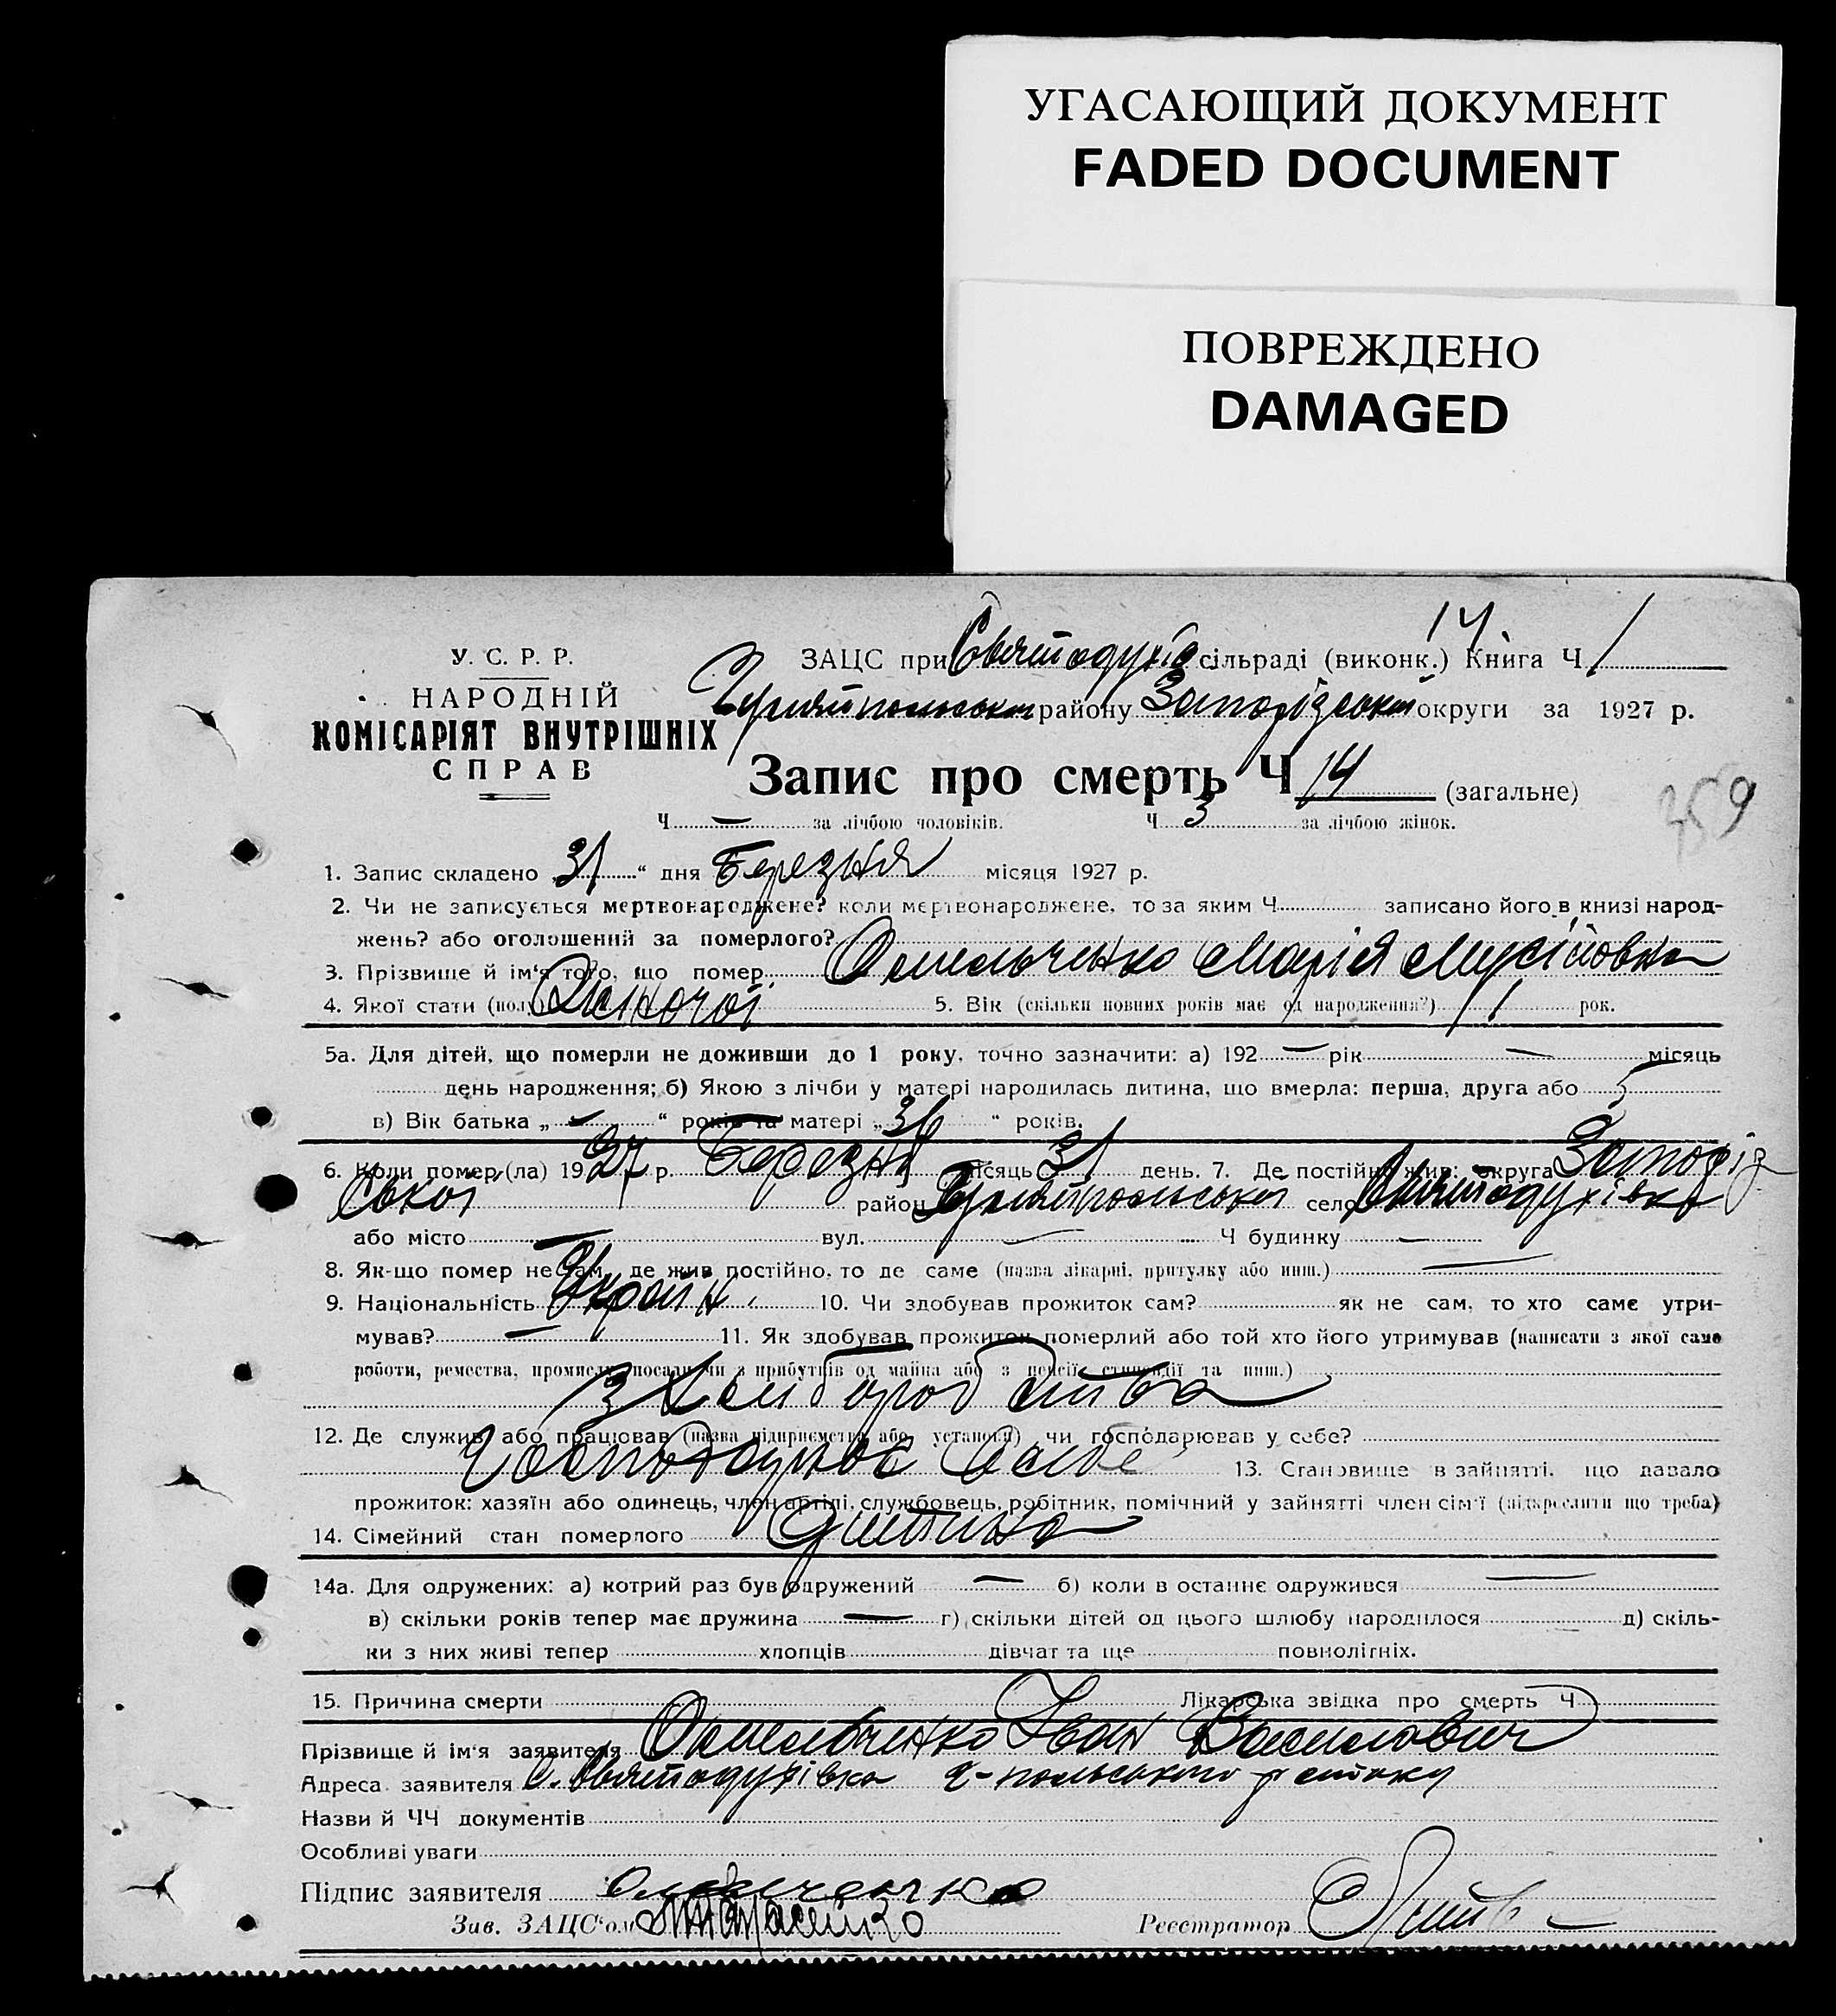 УГАСАЮЩИЙ ДОКУМЕНТ
FADED DOCUMENT
ПОВРЕЖДЕНО
DAMAGED
14
У. С. Р. Р.
НАРОДНІЙ
КОМІСАРІЯТ ВНУТРІШНІХ
СПРАВ
ЗАЦС при Святодухів. сільраді (виконк.) Книга Ч 1
Гуляйпольськог району Запорізької округи за 1927 р.
Запис про смерть Ч 14 (загальне)
359
Ч — за лічбою чоловіків. Ч 3 за лічбою жінок.
1. Запис складено „31“ дня Березня місяця 1927 р.
2. Чи не записується мертвонароджене? коли мертвонароджене, то за яким Ч записано його в книзі народ-
жень? або оголошений за померлого?
3. Прізвище й ім'я того, що помер Омельченко Марія Мусіївна
4. Якої стати (полу) Жіночої 5. Вік (скільки повних років має од народження?) 11 рок.
5а. Для дітей, що померли не доживши до 1 року, точно зазначити: а) 192 — рік — місяць
день народження; б) Якою з лічби у матері народилась дитина, що вмерла: перша, друга або 5
в) Вік батька „ — “ років та матері „36 “ років.
6. Коли помер (ла) 1927 р. Березня місяць 31 день. 7. Де постійно жив: округа Запоріз
ської район Гуляйпольської село Святодухівка
або місто — вул. — Ч будинку —
8. Як-що помер не там, де жив постійно, то де саме (назва лікарні, притулку або инш.) —
9. Національність Україн. 10. Чи здобував прожиток сам? як не сам, то хто саме утри-
мував? — 11. Як здобував прожиток померлий або той хто його утримував (написати з якої саме
роботи, ремества, промислу, посади чи з прибутків од майна або з пенсії, стипендії та инш.)
з Хліборобства
12. Де служив або працював (назва підприємства або установи) чи господарював у себе?
Господарює себе 13. Становище в зайнятті, що давало
прожиток: хазяїн або одинець, член артілі, службовець, робітник, помічний у зайнятті член сім'ї (підкреслити що треба)
14. Сімейний стан померлого Дитина
14а. Для одружених: а) котрий раз був одружений — б) коли в останнє одружився —
в) скільки років тепер має дружина — г) скільки дітей од цього шлюбу народилося д) скіль-
ки з них живі тепер хлопців дівчат та ще повнолітніх.
15. Причина смерти Лікарська звідка про смерть Ч
Прізвище й ім'я заявителя Омельченко Іван Василович
Адреса заявителя С. Святодухівка Г-польського
Назви й ЧЧ документів
Особливі уваги
Підпис заявителя Омельченко
Зав. ЗАЦС'ом Реєстратор